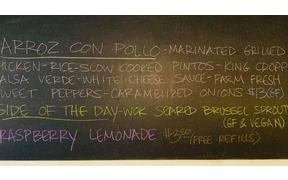 ARROZ CON POLLO-MARINATED GRILLED
CHICKEN-RICE-SLOW COOKED PINTOS-KING CROPP
ALSA VERDE-WHITE CHEESE SAUCE-FARM FRESH
WEET PEPPERS-CARAMELIZED ONIONS
SIDE OF THE DAY-WOK SEARED BRUSSEL SPROUT
(GF & VEGAN)
RASPBERRY LEMONADE $3.50 (FREE REFILLS)